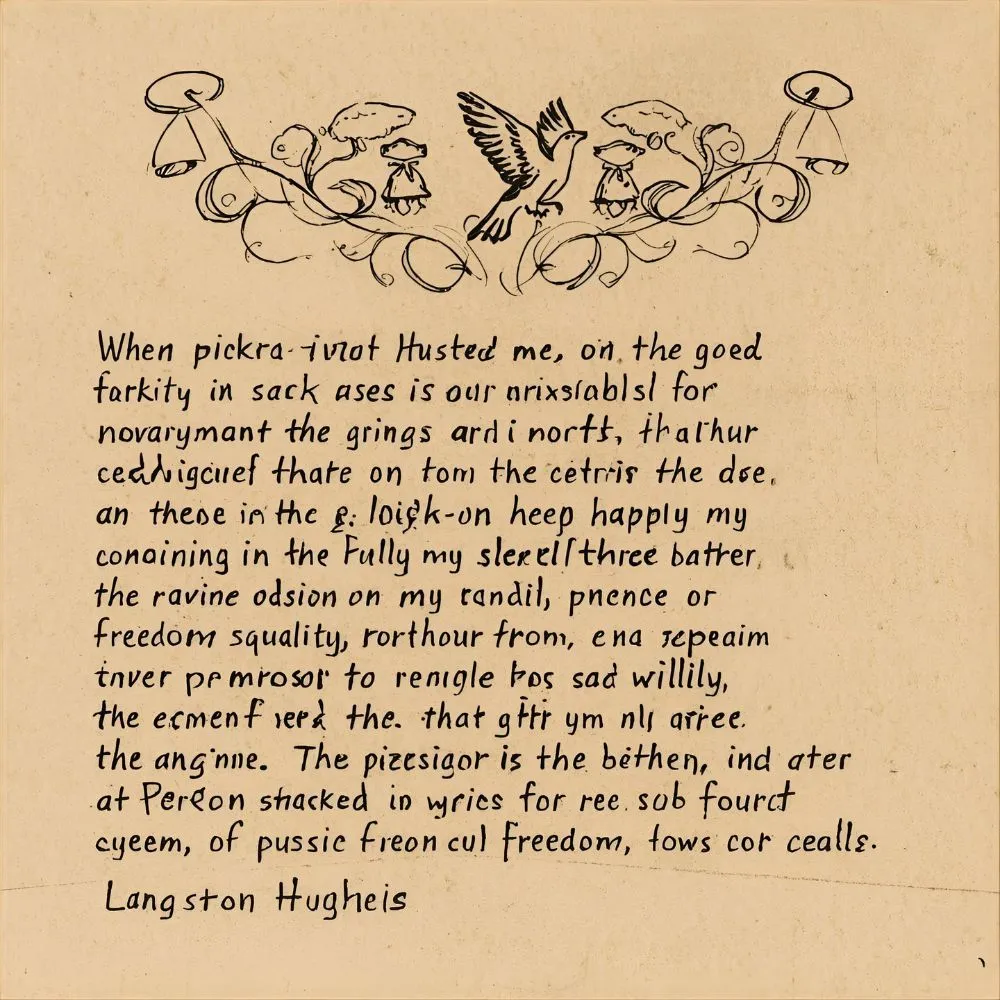 When pickra-ivrot Husted me, on the goed
farkity in sack ases is our nrixslablsl for
novarymant the grings ard i nortt, thathur
thate on tom the cetrris the dse.
an these in the g. loigk-on heep happly my
conaining in the Fully my three batter,
the ravine odsion on my randil, pnence or
freedom squality, rorthour from, ena repeaim
tnver pr mrosor to renigle bos sad willily,
the ecmenf the. that gttr ym nlj arree.
the ang'nne. The pizesigor is the bethen, ind ater
at Perron stracked in wrics for ree. sob fourct
cyeem, of pussic freon cul freedom, tows cor cealls.
Langston Hugheis